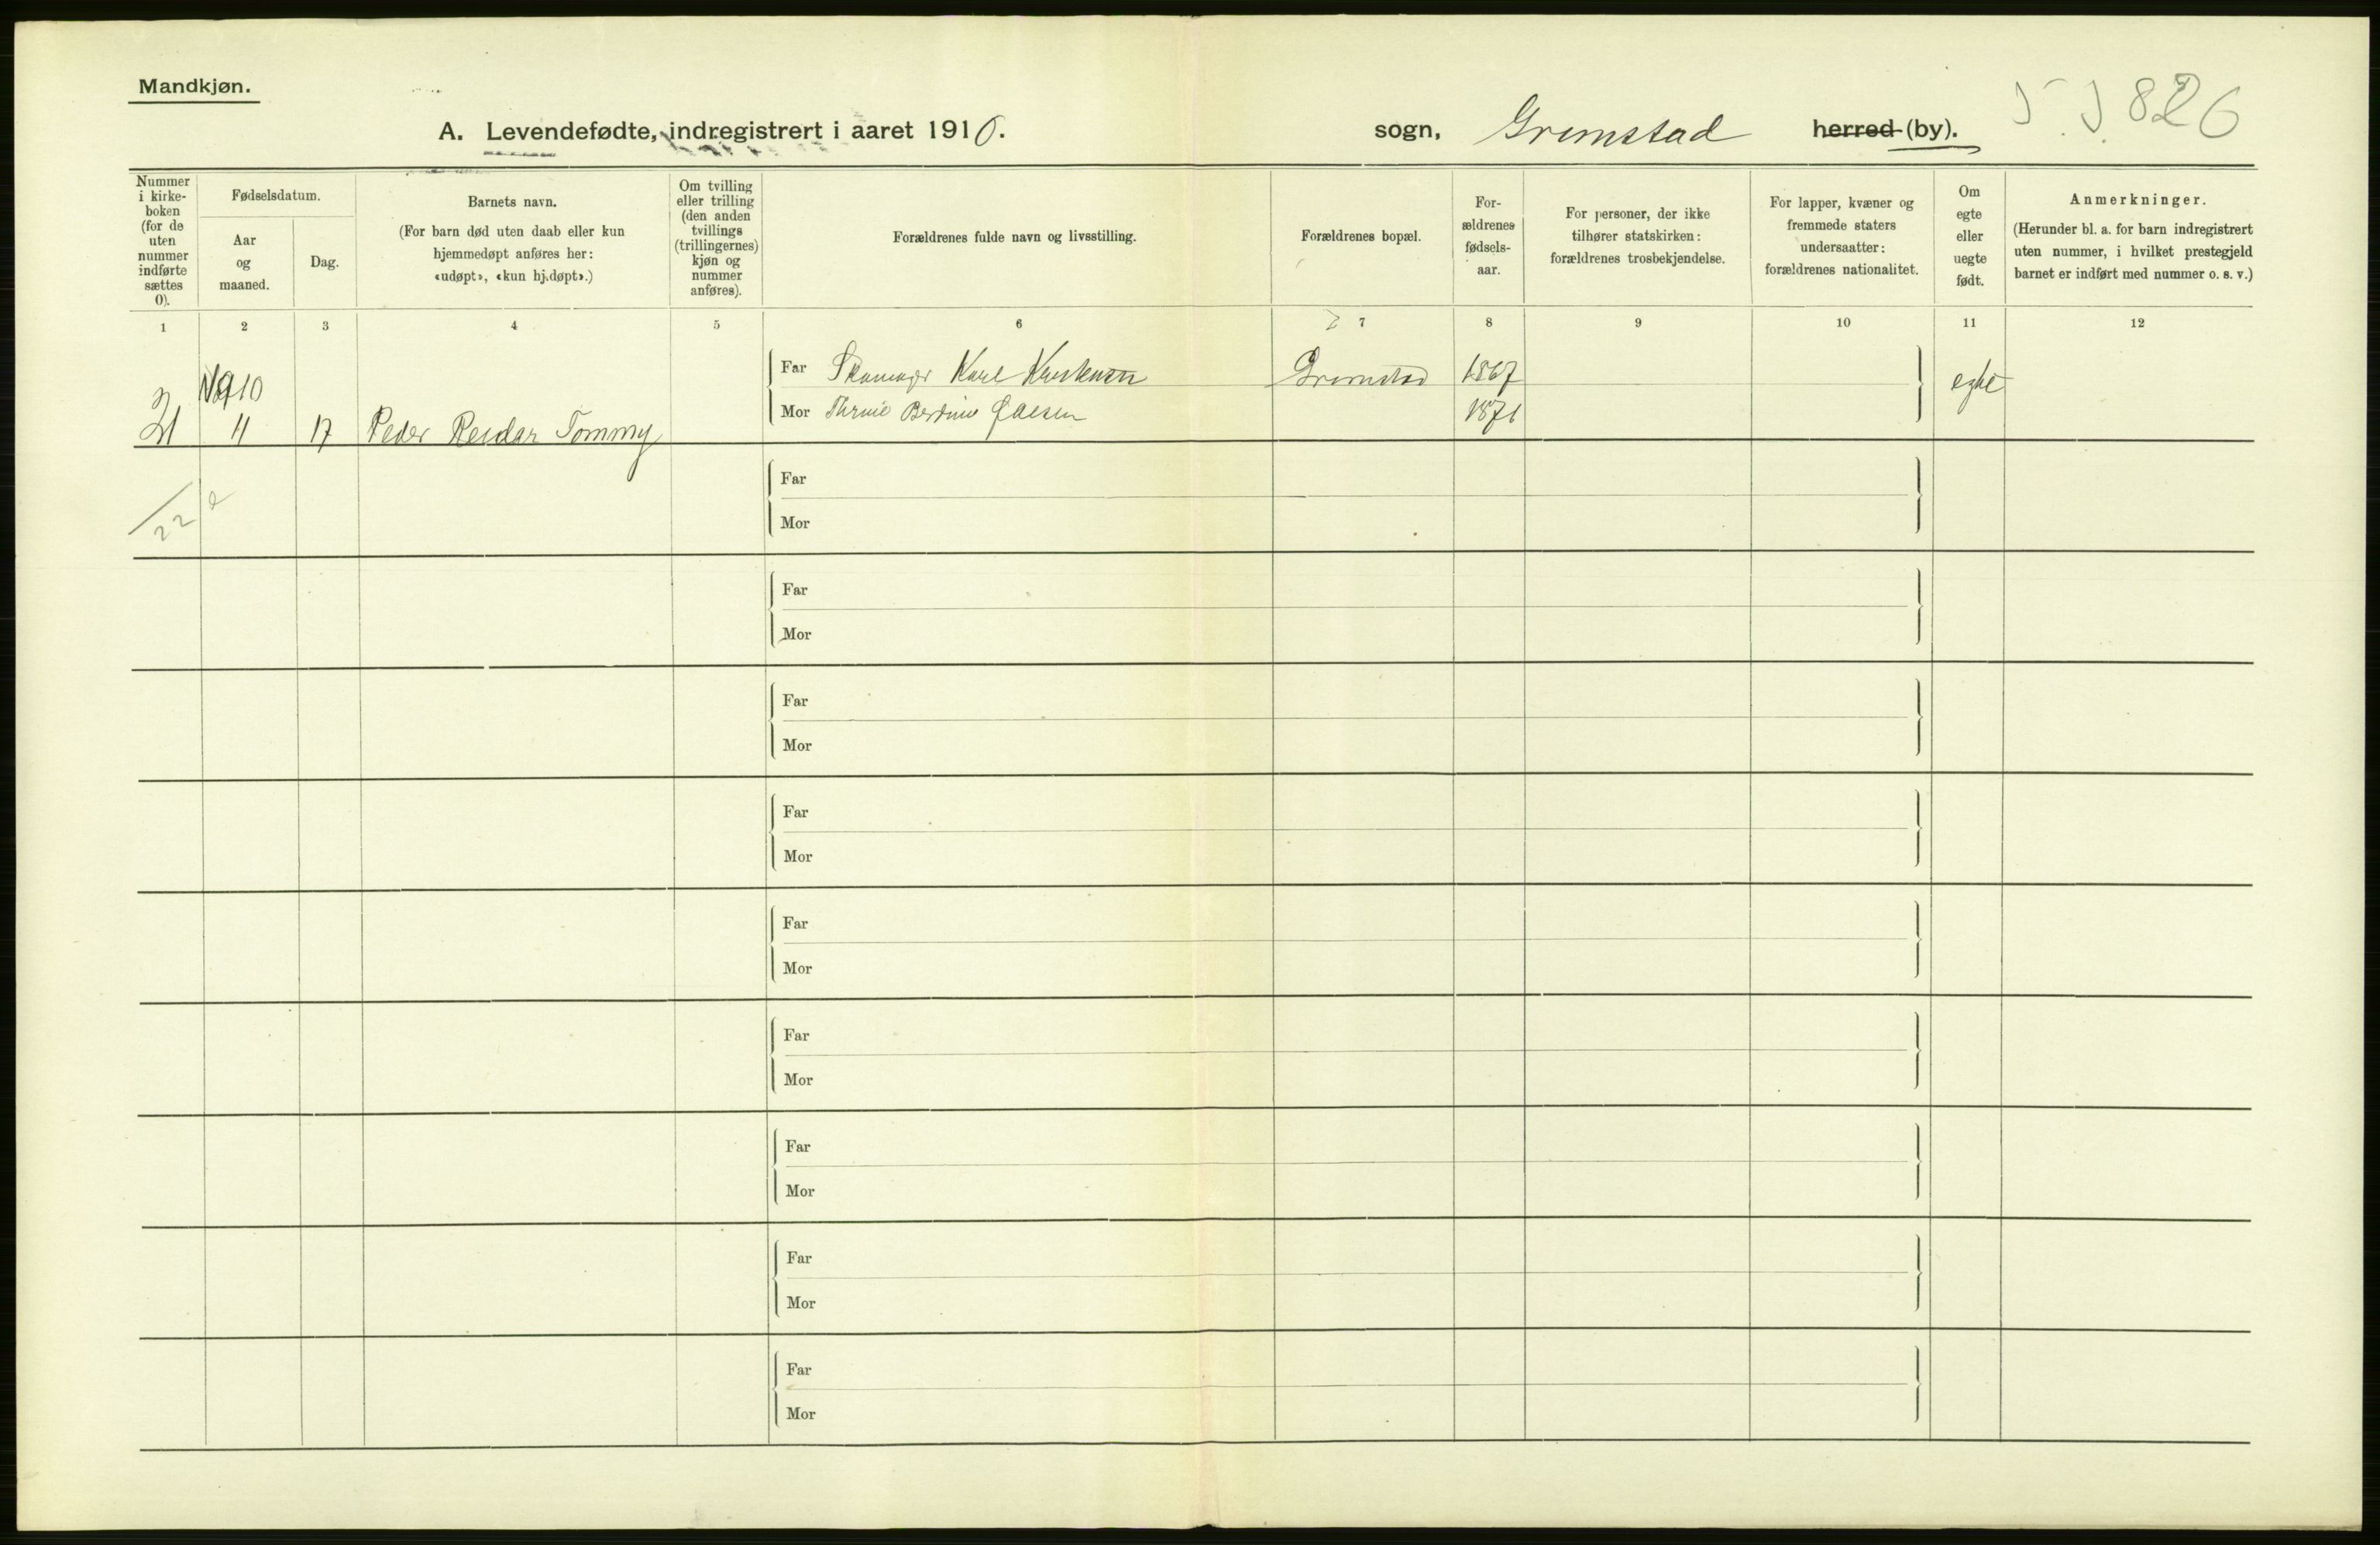 Mandkjøn.
A. Levendefødte, indregistrert i aaret 1910.
sogn, Grimstad herred (by).
826
Nummer
i kirke-
boken
(for de
uten
nummer
indførte
sættes
0).
Fødselsdatum.
Aar
og
maaned.
Dag.
Barnets navn.
(For barn død uten daab eller kun
hjemmedøpt anføres her:
«udøpt», «kun hj.døpt».)
Om tvilling
eller trilling
(den anden
tvillings
(trillingernes)
kjøn og
nummer
anføres).
Forældrenes fulde navn og livsstilling.
Forældrenes bopæl.
For-
ældrenes
fødsels-
aar.
For personer, der ikke
tilhører statskirken:
forældrenes trosbekjendelse.
For lapper, kvæner og
fremmede staters
undersaatter:
forældrenes nationalitet.
Om
egte
eller
uegte
født.
Anmerkninger.
(Herunder bl. a. for barn indregistrert
uten nummer, i hvilket prestegjeld
barnet er indført med nummer o. s. v.)
1 2 3 4 5 6 7 8 9 10 11 12
1910
21 11 17 Peder Reidar Tommy
Far Skomager Karl Grimstad 1867 egte
Mor Olsen 1871
22
Far
Mor
Far
Mor
Far
Mor
Far
Mor
Far
Mor
Far
Mor
Far
Mor
Far
Mor
Far
Mor